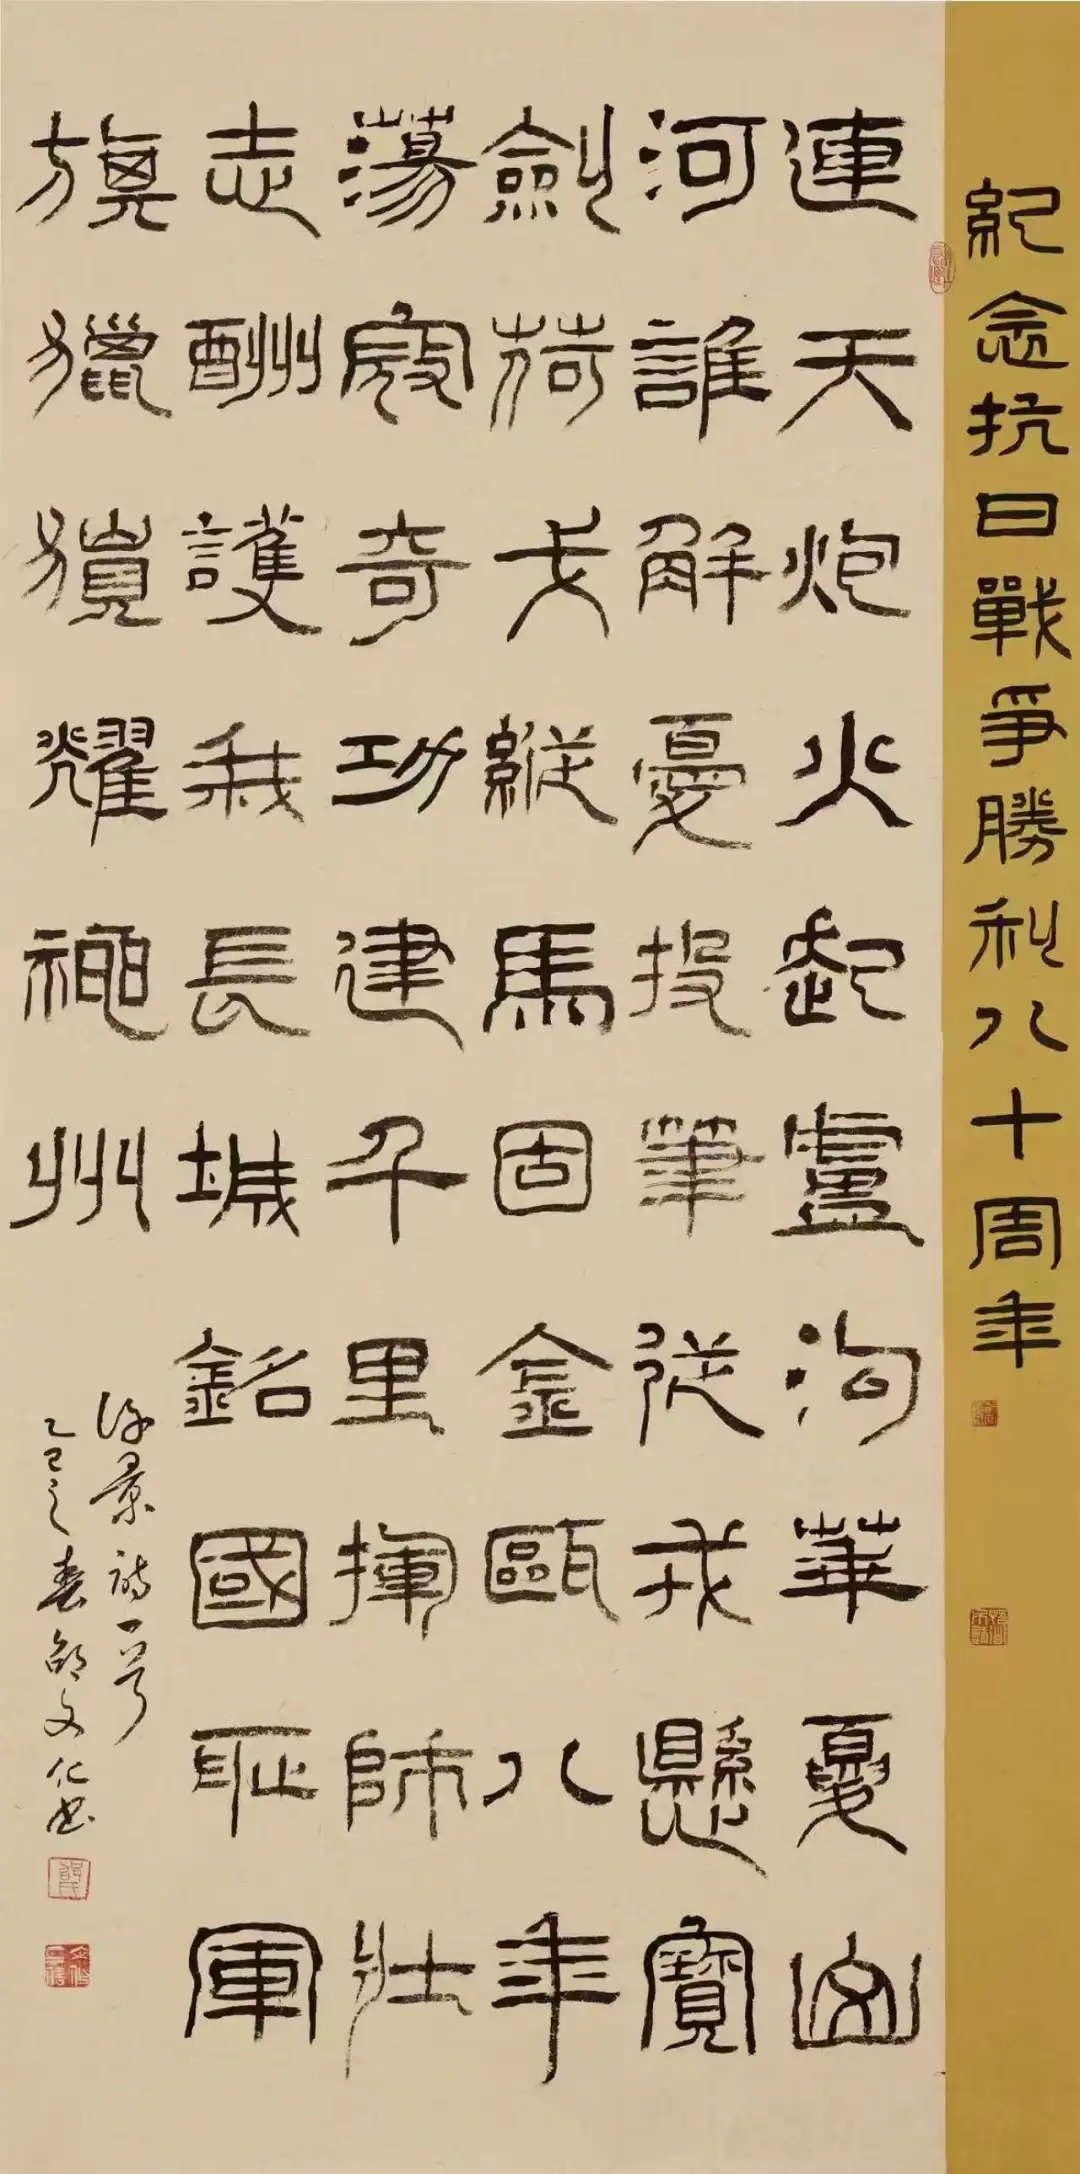 紀念抗日戰爭勝利八十周年
連天炮火起盧溝華夏山
河誰解憂投筆從戎懸寶
劍荷戈縱馬固金甌八年
蕩寇奇功建千里揮師壯
志酬護我長城銘國恥軍
旗獵獵耀神州
景詩一首
乙巳之春邵文化書